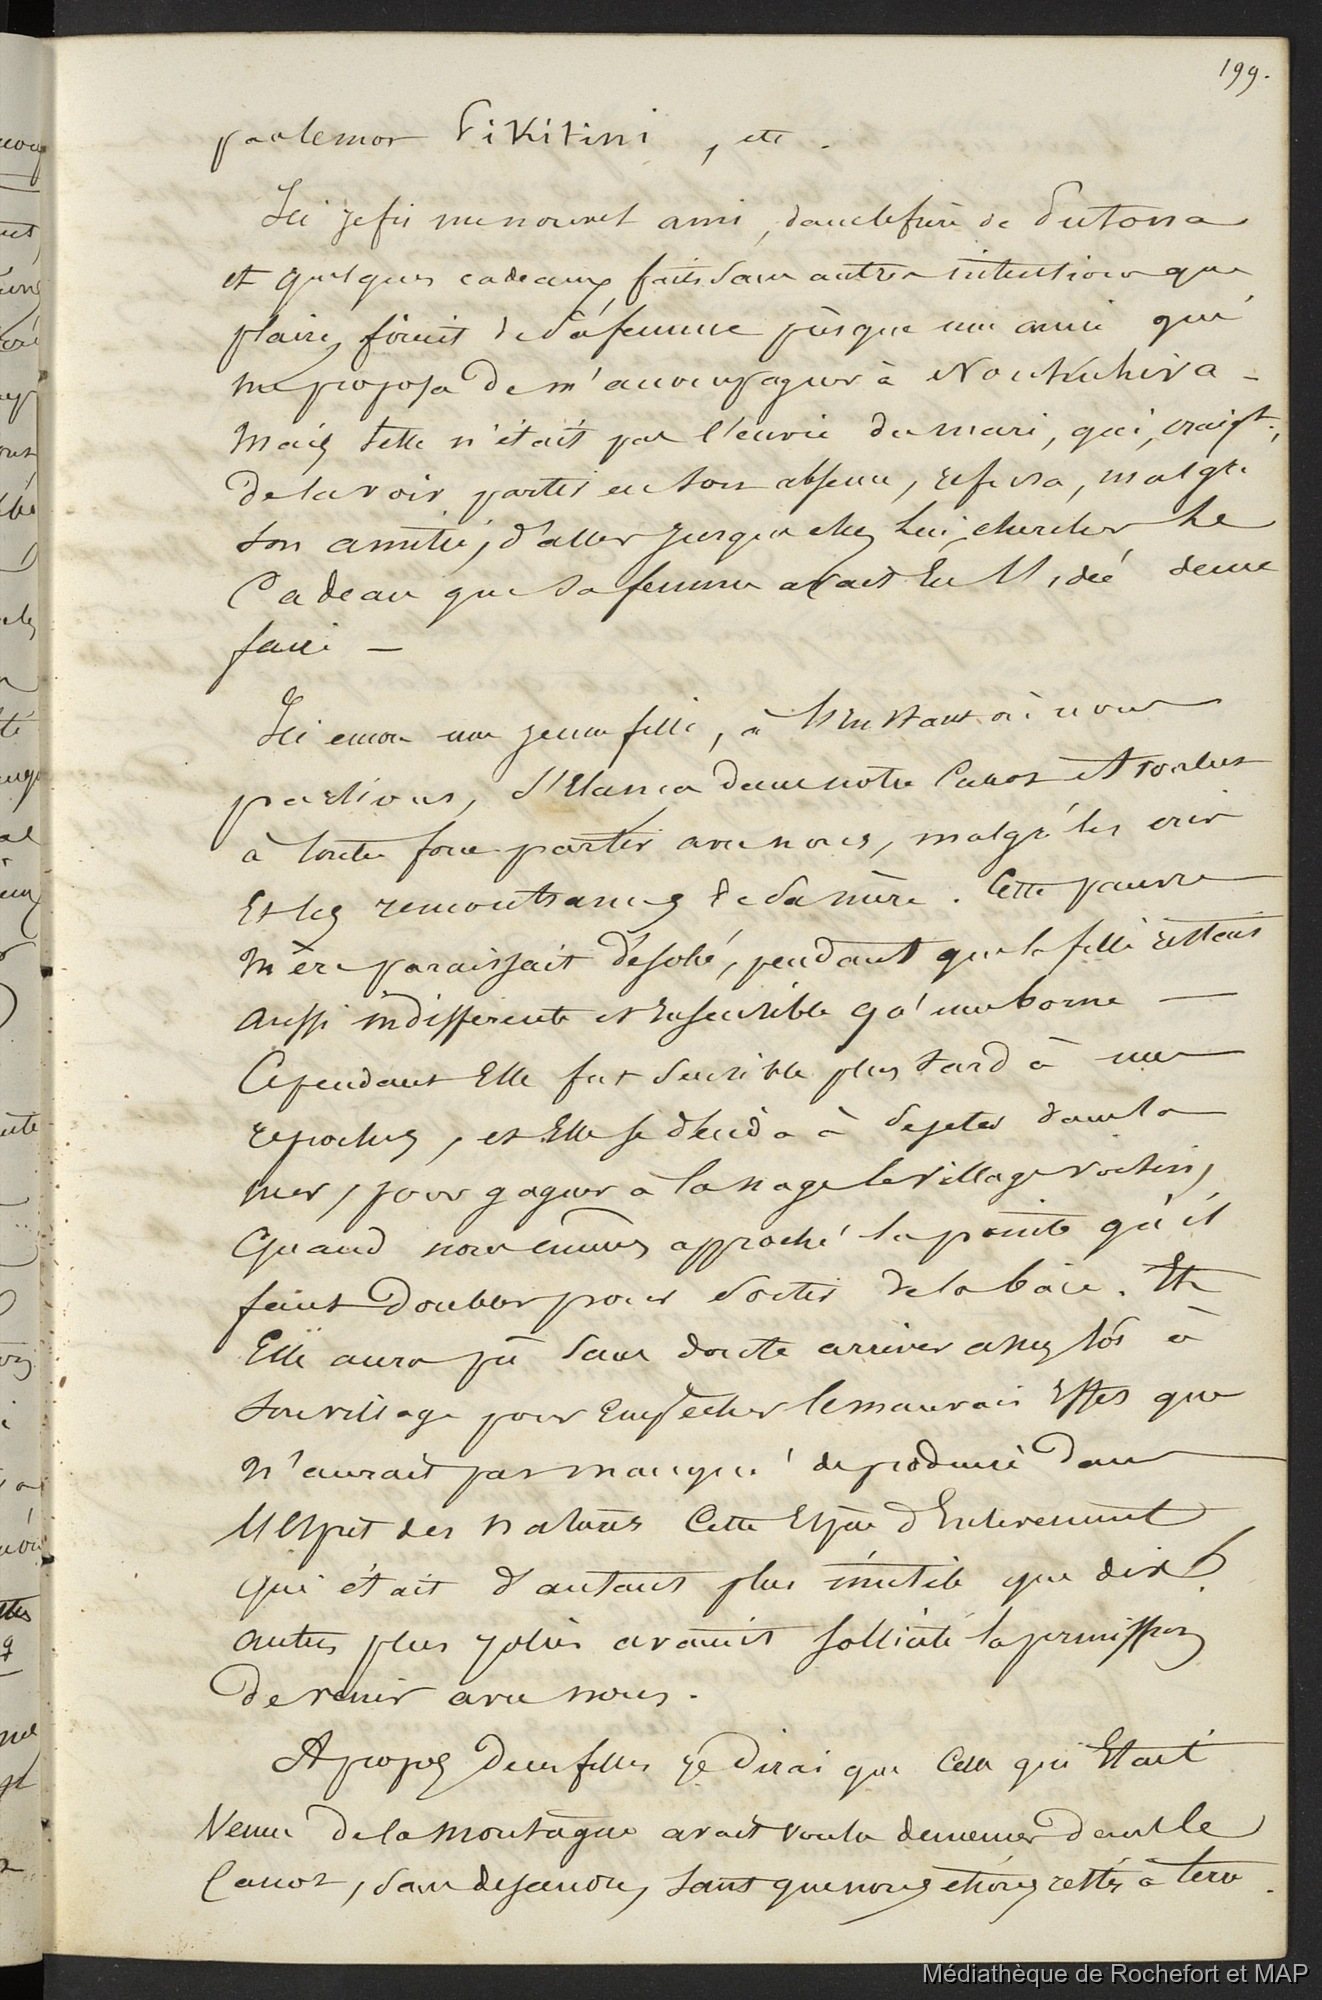 199.
par le mot Pikitini, etc.
Ici je fis un nouvel ami, dans le frère de Putona
et quelques cadeaux faits sans autre intention que
plaire, firent de sa femme presque une amie qui
me proposa de m'accompagner à Noukuhiva -
Mais telle n'était pas l'envie du mari, qui, craigt.,
de la voir partir en son absence, refusa, malgré
son amitié, d'aller jusque chez lui, chercher le
Cadeau que sa femme avait Eu l'idée de me
faire -
Ici encore une jeune fille, à l'instant où nous
partions, s'Elança dans notre Canot et voulut
à toute force partir avec nous, malgré les cris
Et les remontrances de sa mère. Cette pauvre
mère paraissait désolée, pendant que la fille restait
aussi indifférente et Insensible qu'une borne -
Cependant Elle fut sensible plus tard à mes
reproches, et Elle se décida à se jeter dans la
mer, pour gagner à la nage le village voisin,
Quand nous eumes approché la pointe qu'il
faut doubler pour sortir de la baie. Et
Elle aura pû sans doute arriver assez tôt à
son village pour Empêcher le mauvais Effet que
n'aurait pas manqué de produire dans
l'Esprit des naturels Cette Espèce d'Enlèvement
qui était d'autant plus inutile que dix
autres plus jolies avaient sollicité la permission
de venir avec nous.
A propos de ces filles je dirai que Celle qui Etait
Venue de la montagne avait voulu demeurer dans le
Canot, sans descendre, tant que nous étions restés à terre.
Médiathèque de Rochefort et MAP